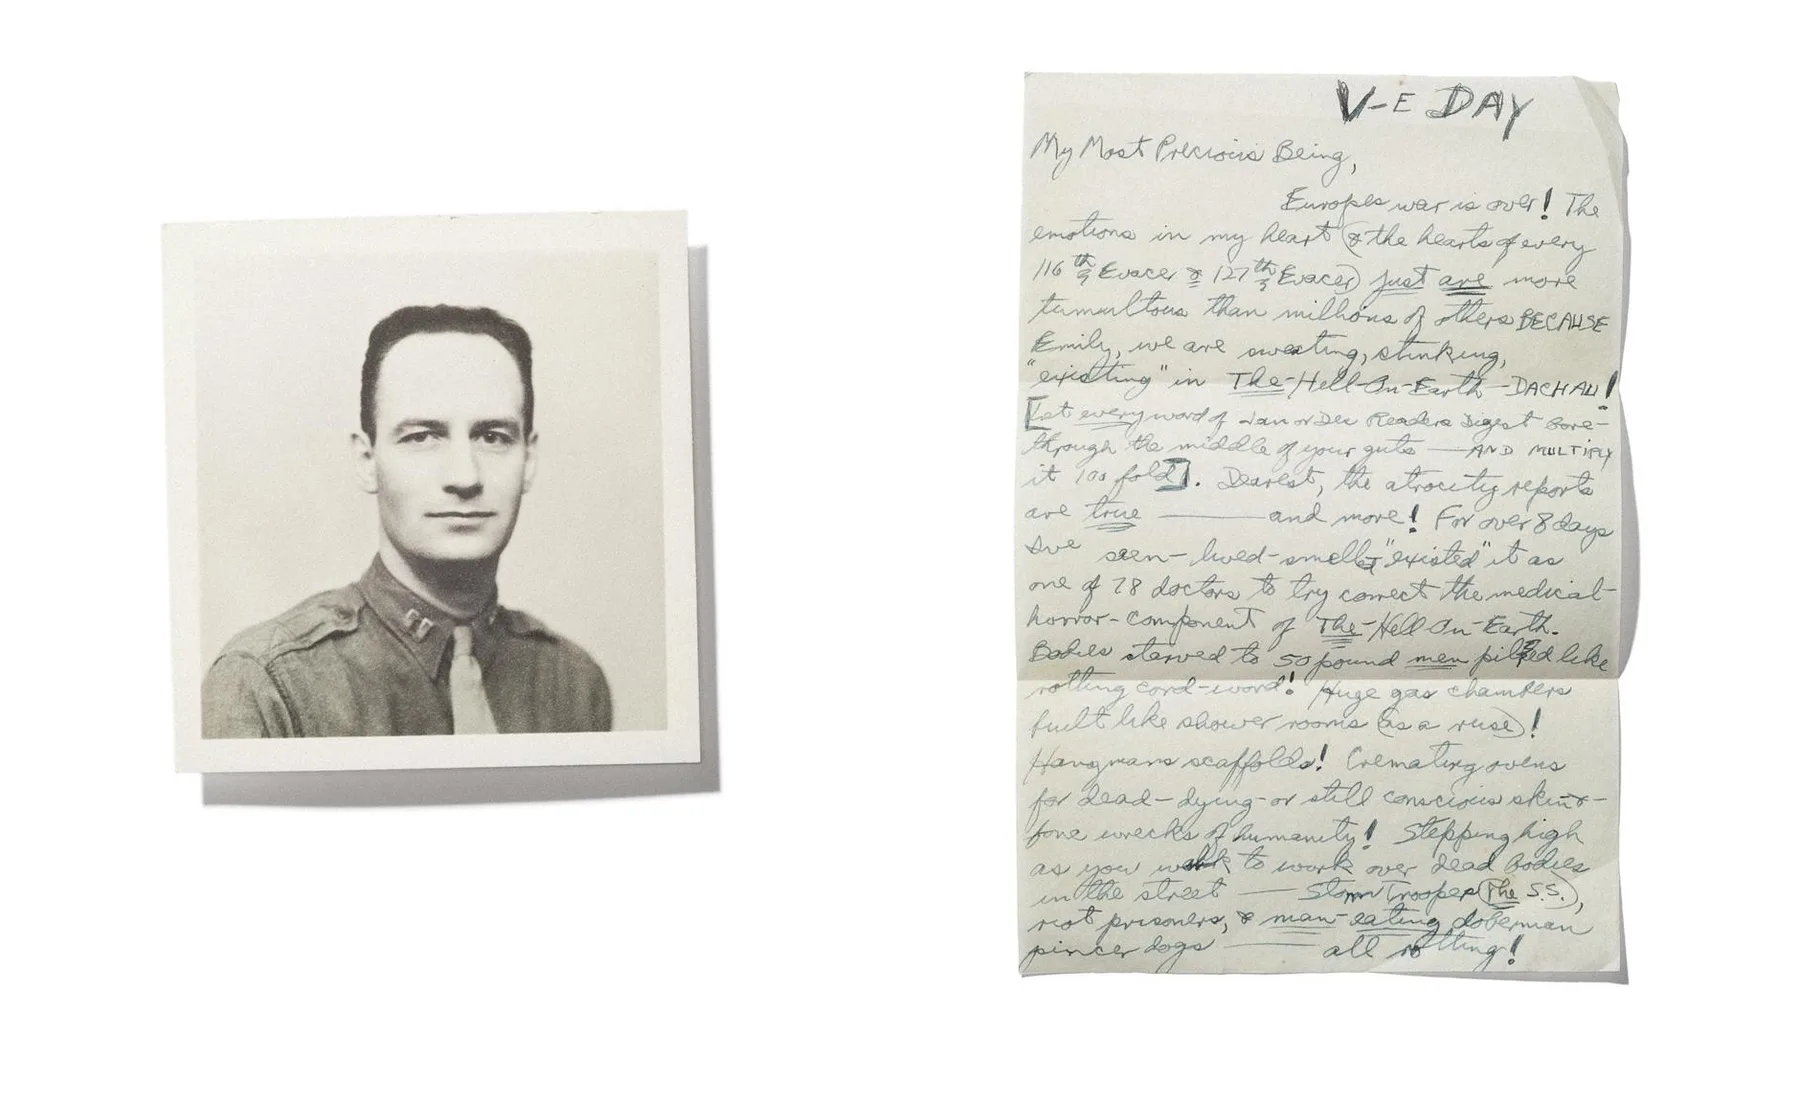 V-E DAY
My Most Precious Being,
Europes war is over! The
emotions in my heart (& the hearts of every
116th Evacer & 127th Evacer) just are more
tumultous than millions of others BECAUSE
Emily, we are sweating, stinking,
"existing" in The-Hell-On-Earth-DACHAU!
[Let every word of Jan or Dec Readers Digest bore-
through the middle of your guts — AND MULTIPLY
it 100 fold]. Dearest, the atrocity reports
are true — and more! For over 8 days
I've seen-lived-smelt "existed" it as
one of 28 doctors to try correct the medical-
horror-component of The-Hell-On-Earth.
Bodies starved to 50 pound men piled like
rotting cord-wood! Huge gas chambers
built like shower rooms (as a ruse)!
Hangmans scaffolds! Cremating ovens
for dead-dying-or still conscious skin-&-
bone wrecks of humanity! Stepping high
as you walk to work over dead bodies
in the street — Storm Trooper (The S.S.),
riot prisoners, & man-eating doberman
pincer dogs — all rotting!